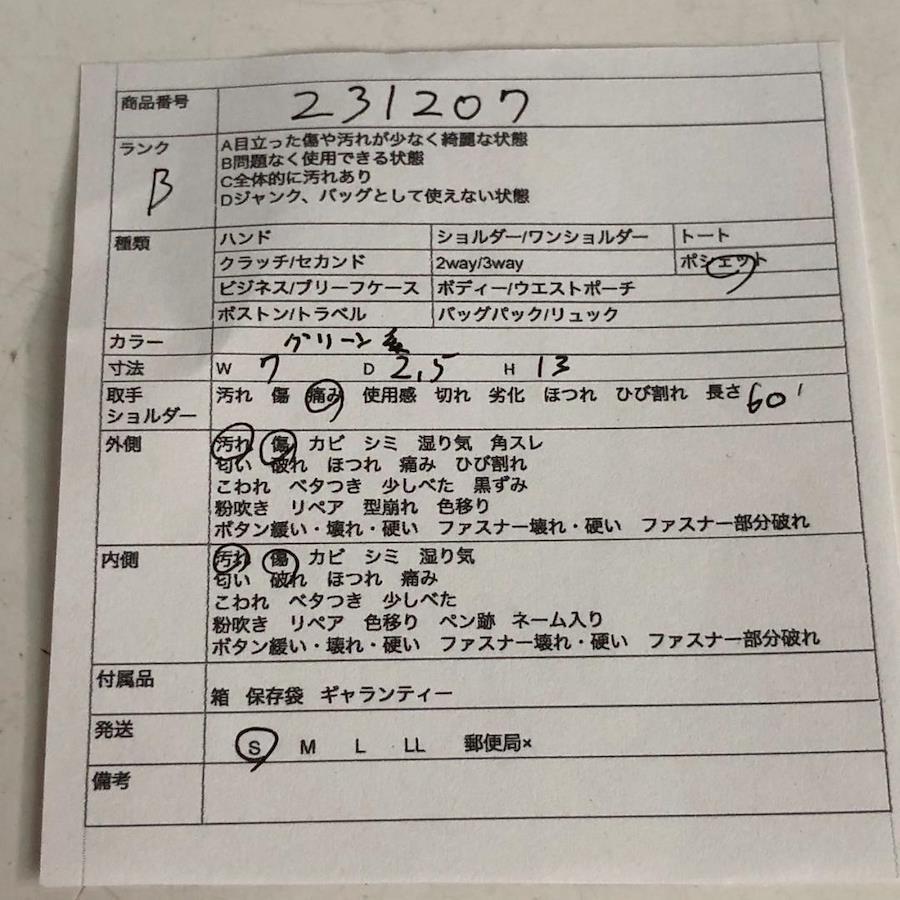 商品番号 231207
ランク B
A目立った傷や汚れが少なく綺麗な状態
B問題なく使用できる状態
C全体的に汚れあり
Dジャンク、バッグとして使えない状態
種類 ハンド ショルダー/ワンショルダー トート
クラッチ/セカンド 2way/3way ポシェット
ビジネス/ブリーフケース ボディー/ウエストポーチ
ボストン/トラベル バッグパック/リュック
カラー グリーン系
寸法 W 7 D 2.5 H 13
取手
ショルダー
汚れ 傷 痛み 使用感 切れ 劣化 ほつれ ひび割れ 長さ 60
外側 汚れ 傷 カビ シミ 湿り気 角スレ
匂い 破れ ほつれ 痛み ひび割れ
こわれ ベタつき 少しべた 黒ずみ
粉吹き リペア 型崩れ 色移り
ボタン緩い・壊れ・硬い ファスナー壊れ・硬い ファスナー部分破れ
内側 汚れ 傷 カビ シミ 湿り気
匂い 破れ ほつれ 痛み
こわれ ベタつき 少しべた
粉吹き リペア 色移り ペン跡 ネーム入り
ボタン緩い・壊れ・硬い ファスナー壊れ・硬い ファスナー部分破れ
付属品 箱 保存袋 ギャランティー
発送 S M L LL 郵便局×
備考